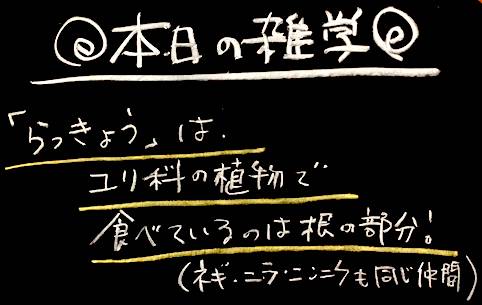 本日の雑学
「らっきょう」は、
ユリ科の植物で
食べているのは根の部分!
(ネギ・ニラ・ニンニクも同じ仲間)